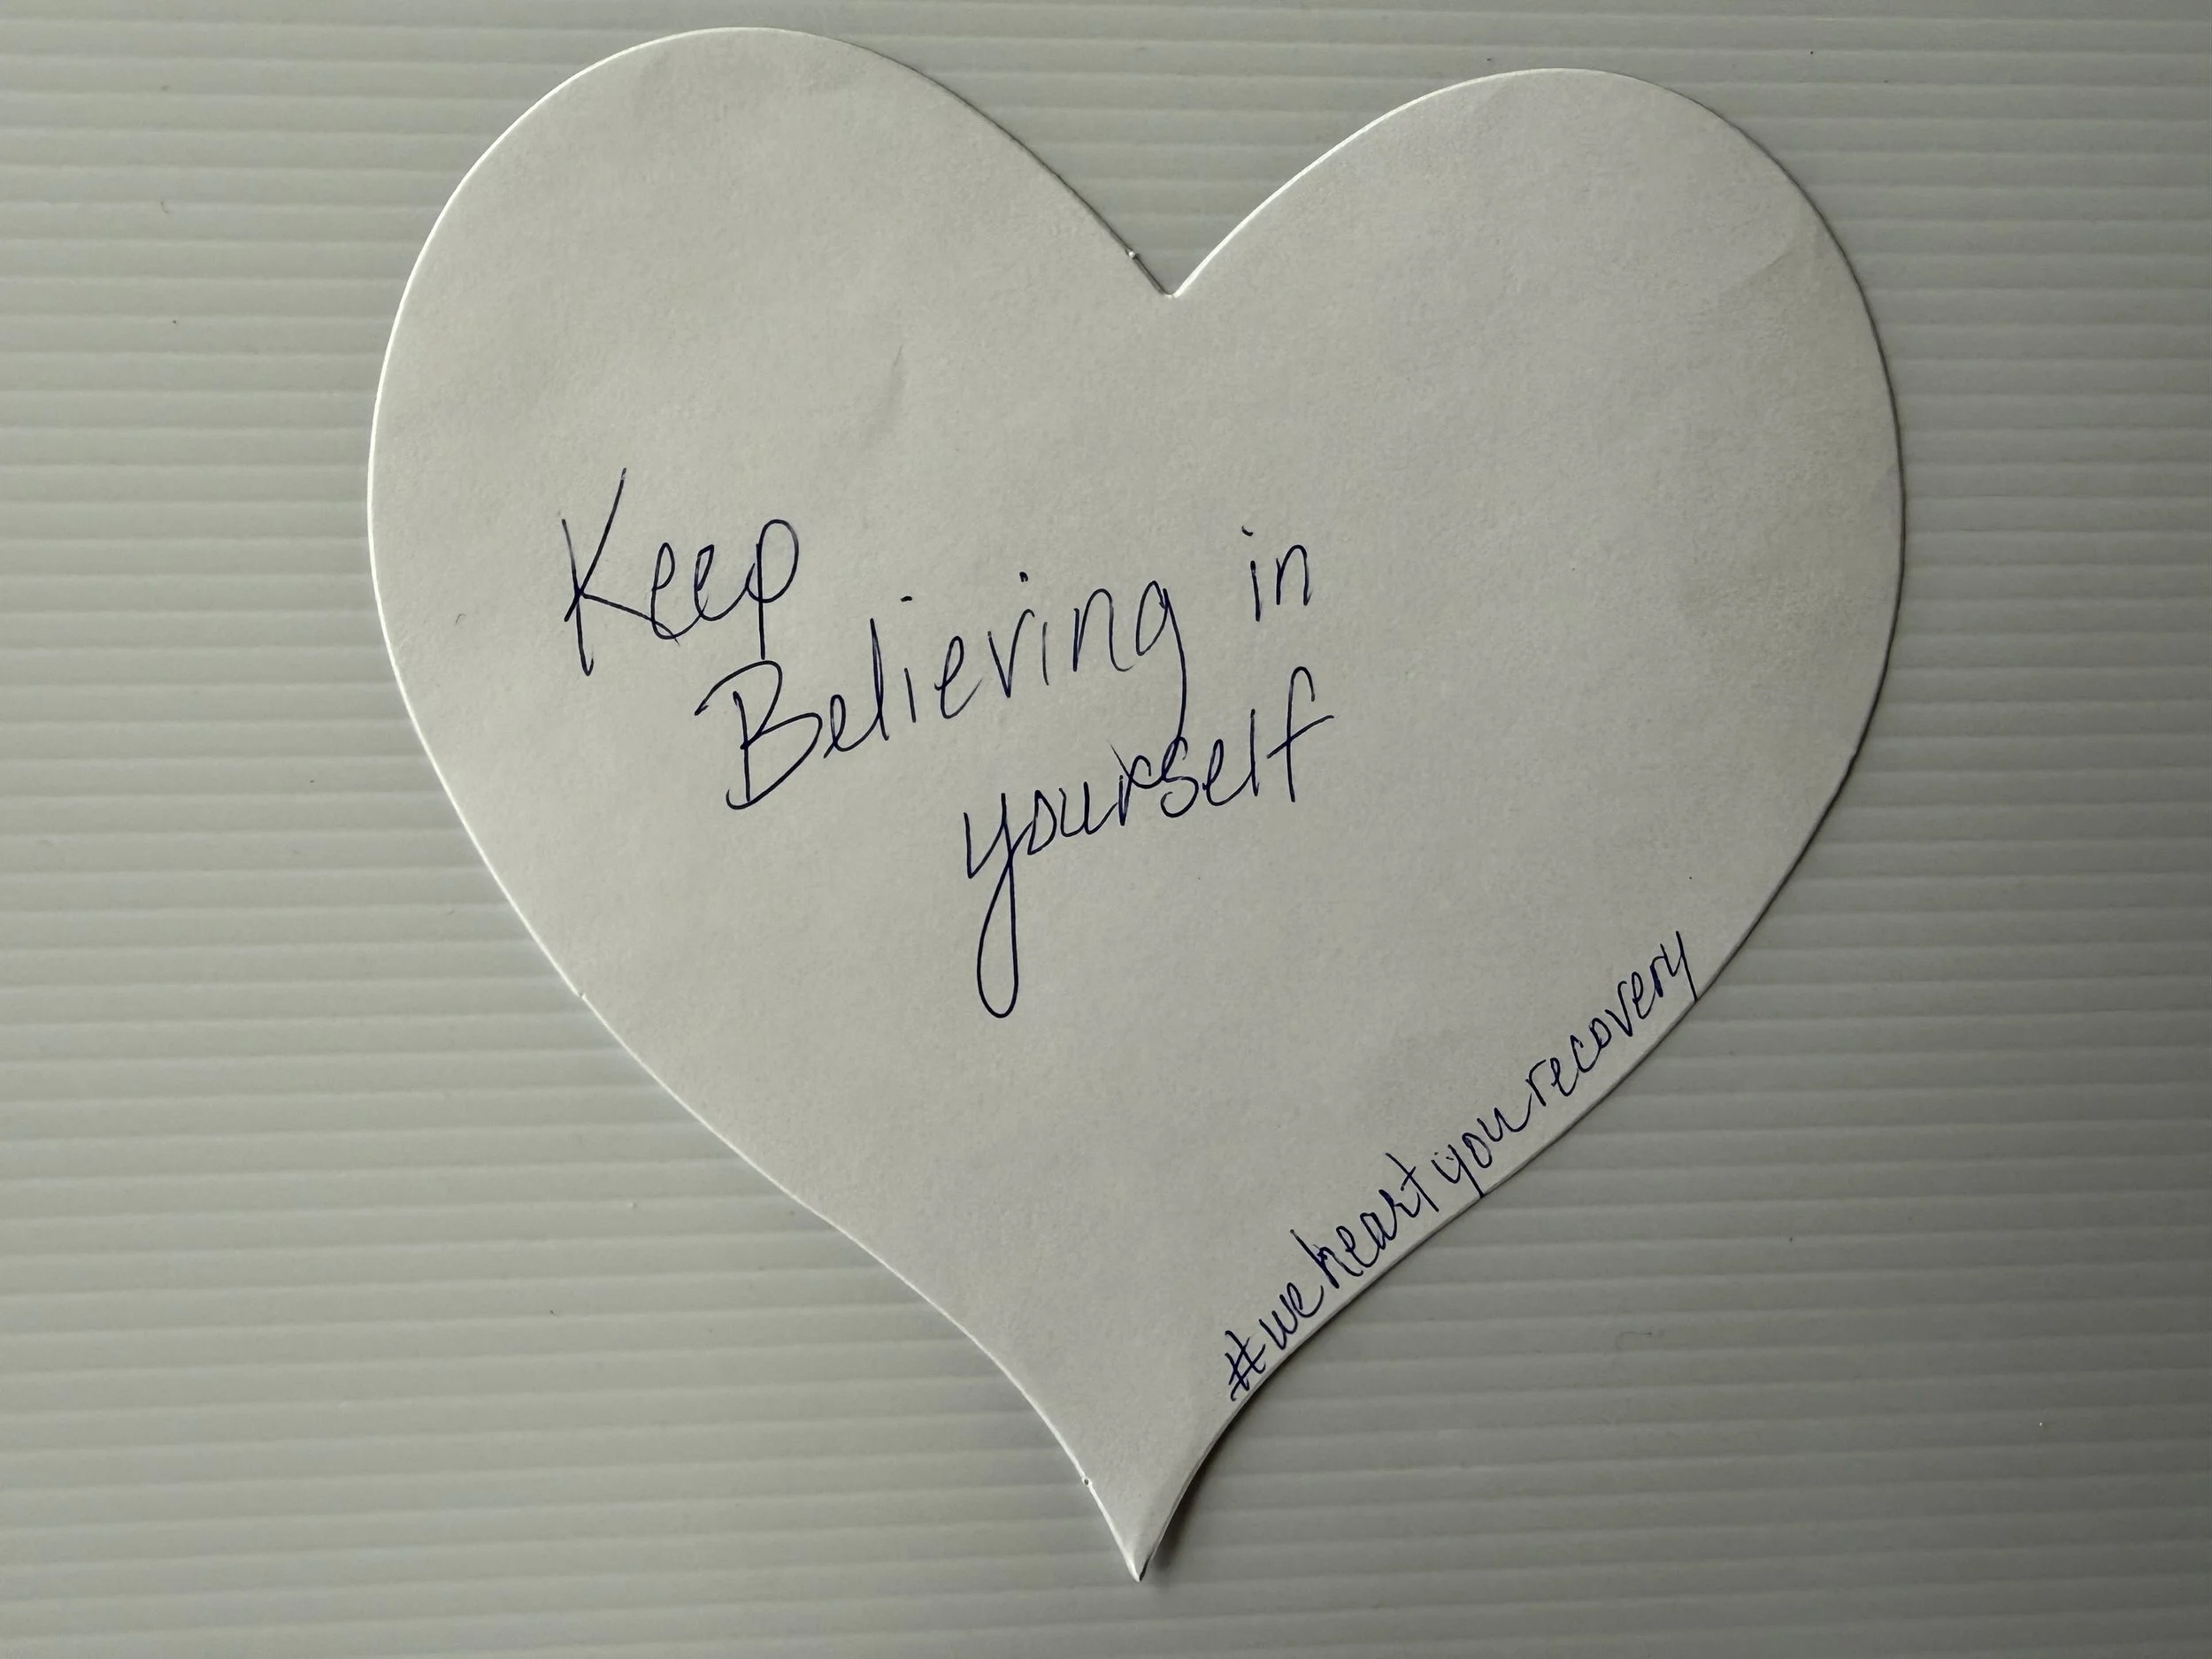 Keep
Believing in
yourself
#weheartyourecovery